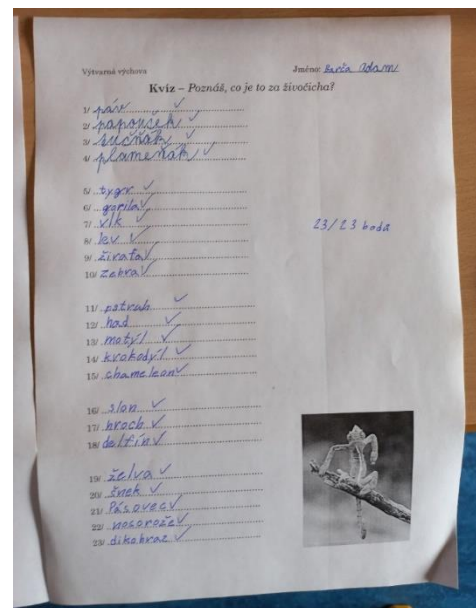 Výtvarná výchova
Jméno: Barča Adam
Kvíz – Poznáš, co je to za živočicha?
1/ páv ✓
2/ papoušek ✓
3/ tučňák ✓
4/ plameňák ✓
5/ tygr ✓
6/ gorila ✓
7/ vlk ✓
8/ lev ✓
9/ žirafa ✓
10/ zebra ✓
23/23 bodů
11/ pstruh ✓
12/ had ✓
13/ motýl ✓
14/ krokodýl ✓
15/ chameleon ✓
16/ slon ✓
17/ hroch ✓
18/ delfín ✓
19/ želva ✓
20/ šnek ✓
21/ Pásovec ✓
22/ nosorože ✓
23/ dikobraz ✓